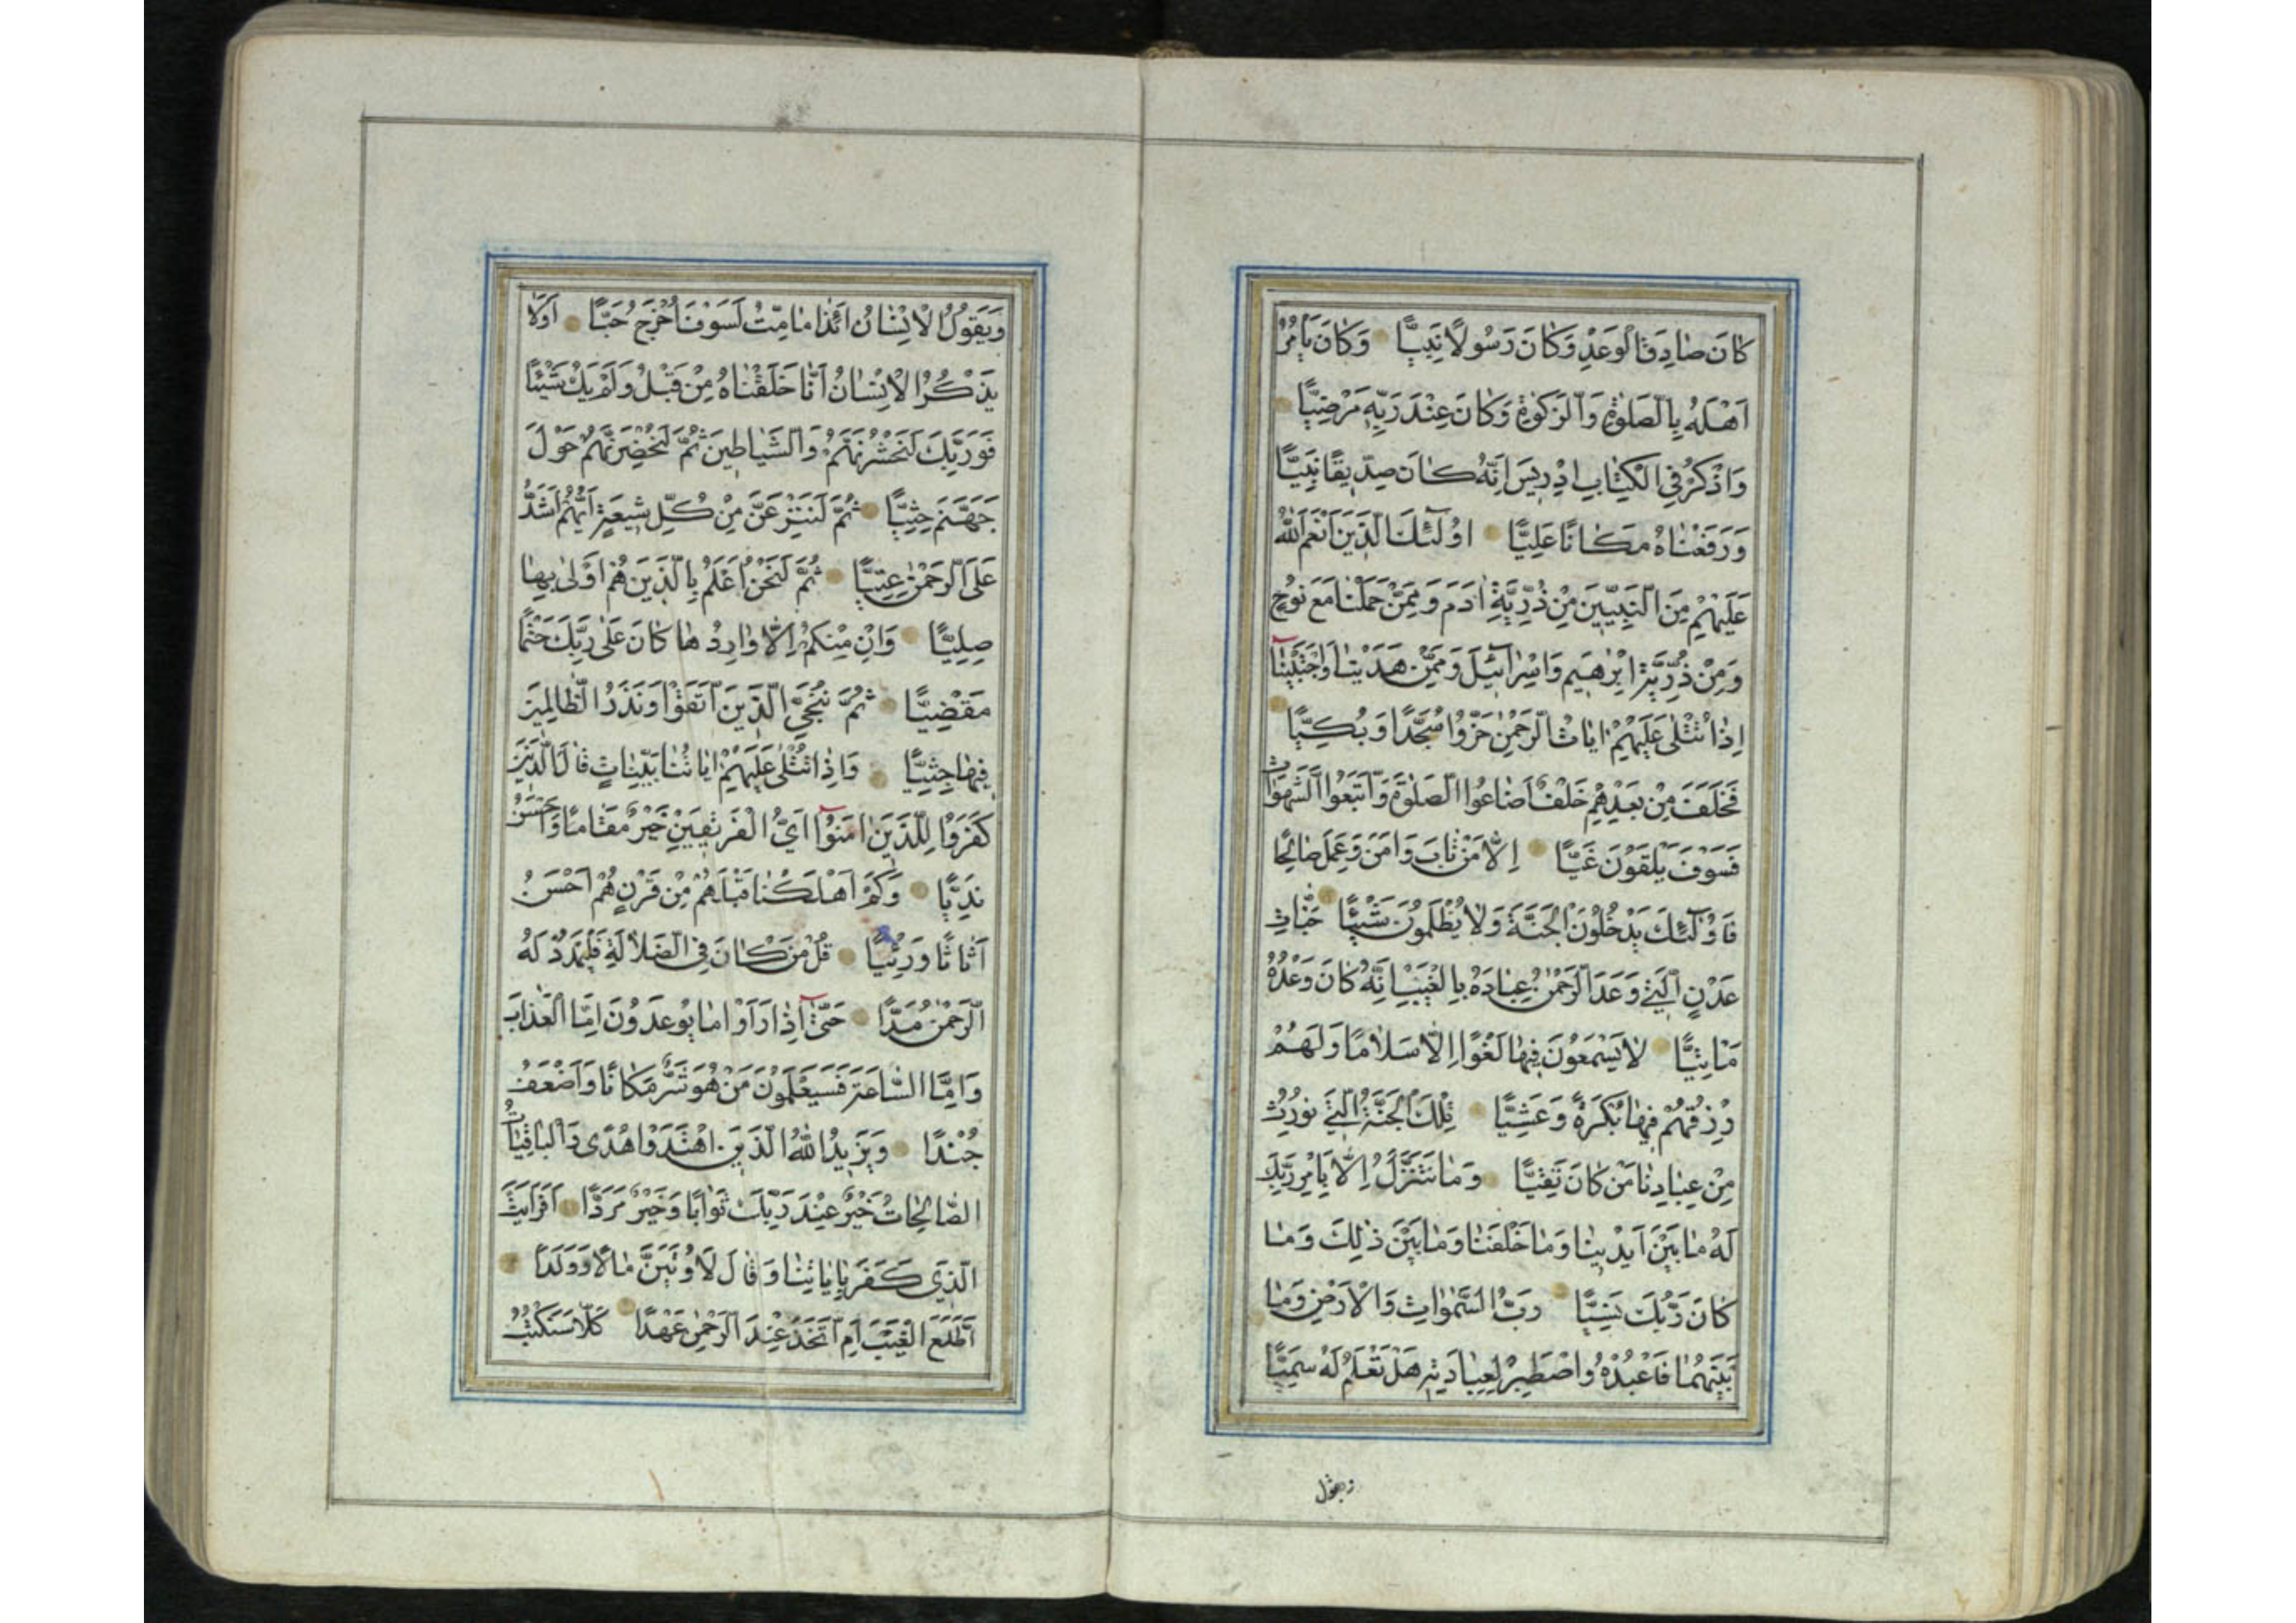 كَانَ صَادِقَ الْوَعْدِ وَكَانَ رَسُولًا نَبِيًّا وَكَانَ يَأْمُرُ
اَهْلَهُ بِالصَّلٰوةِ وَالزَّكٰوةِ وَكَانَ عِنْدَ رَبِّهِ مَرْضِيًّا
وَاذْكُرْ فِي الْكِتَابِ اِدْرِيسَ اِنَّهُ كَانَ صِدِّيقًا نَبِيًّا
وَرَفَعْنَاهُ مَكَانًا عَلِيًّا اُولٰٓئِكَ الَّذِينَ اَنْعَمَ اللّٰهُ
عَلَيْهِمْ مِنَ النَّبِيِّينَ مِنْ ذُرِّيَّةِ اٰدَمَ وَمِمَّنْ حَمَلْنَا مَعَ نُوحٍ
وَمِنْ ذُرِّيَّةِ اِبْرٰهِيمَ وَاِسْرَآئِيلَ وَمِمَّنْ هَدَيْنَا وَاجْتَبَيْنَا
اِذَا تُتْلٰى عَلَيْهِمْ اٰيَاتُ الرَّحْمٰنِ خَرُّوا سُجَّدًا وَبُكِيًّا
فَخَلَفَ مِنْ بَعْدِهِمْ خَلْفٌ اَضَاعُوا الصَّلٰوةَ وَاتَّبَعُوا الشَّهَوَاتِ
فَسَوْفَ يَلْقَوْنَ غَيًّا اِلَّا مَنْ تَابَ وَاٰمَنَ وَعَمِلَ صَالِحًا
فَاُولٰٓئِكَ يَدْخُلُونَ الْجَنَّةَ وَلَا يُظْلَمُونَ شَيْئًا جَنَّاتِ
عَدْنٍ الَّتِي وَعَدَ الرَّحْمٰنُ عِبَادَهُ بِالْغَيْبِ اِنَّهُ كَانَ وَعْدُهُ
مَأْتِيًّا لَا يَسْمَعُونَ فِيهَا لَغْوًا اِلَّا سَلَامًا وَلَهُمْ
رِزْقُهُمْ فِيهَا بُكْرَةً وَعَشِيًّا تِلْكَ الْجَنَّةُ الَّتِي نُورِثُ
مِنْ عِبَادِنَا مَنْ كَانَ تَقِيًّا وَمَا نَتَنَزَّلُ اِلَّا بِاَمْرِ رَبِّكَ
لَهُ مَا بَيْنَ اَيْدِينَا وَمَا خَلْفَنَا وَمَا بَيْنَ ذٰلِكَ وَمَا
كَانَ رَبُّكَ نَسِيًّا رَبُّ السَّمٰوَاتِ وَالْاَرْضِ وَمَا
بَيْنَهُمَا فَاعْبُدْهُ وَاصْطَبِرْ لِعِبَادَتِهِ هَلْ تَعْلَمُ لَهُ سَمِيًّا
ويقول
وَيَقُولُ الْاِنْسَانُ اَئِذَا مَا مِتُّ لَسَوْفَ اُخْرَجُ حَيًّا اَوَلَا
يَذْكُرُ الْاِنْسَانُ اَنَّا خَلَقْنَاهُ مِنْ قَبْلُ وَلَمْ يَكُ شَيْئًا
فَوَرَبِّكَ لَنَحْشُرَنَّهُمْ وَالشَّيَاطِينَ ثُمَّ لَنُحْضِرَنَّهُمْ حَوْلَ
جَهَنَّمَ جِثِيًّا ثُمَّ لَنَنْزِعَنَّ مِنْ كُلِّ شِيعَةٍ اَيُّهُمْ اَشَدُّ
عَلَى الرَّحْمٰنِ عِتِيًّا ثُمَّ لَنَحْنُ اَعْلَمُ بِالَّذِينَ هُمْ اَوْلٰى بِهَا
صِلِيًّا وَاِنْ مِنْكُمْ اِلَّا وَارِدُهَا كَانَ عَلٰى رَبِّكَ حَتْمًا
مَقْضِيًّا ثُمَّ نُنَجِّي الَّذِينَ اتَّقَوْا وَنَذَرُ الظَّالِمِينَ
فِيهَا جِثِيًّا وَاِذَا تُتْلٰى عَلَيْهِمْ اٰيَاتُنَا بَيِّنَاتٍ قَالَ الَّذِينَ
كَفَرُوا لِلَّذِينَ اٰمَنُوا اَيُّ الْفَرِيقَيْنِ خَيْرٌ مَقَامًا وَاَحْسَنُ
نَدِيًّا وَكَمْ اَهْلَكْنَا قَبْلَهُمْ مِنْ قَرْنٍ هُمْ اَحْسَنُ
اَثَاثًا وَرِئْيًا قُلْ مَنْ كَانَ فِي الضَّلَالَةِ فَلْيَمْدُدْ لَهُ
الرَّحْمٰنُ مَدًّا حَتّٰٓى اِذَا رَاَوْا مَا يُوعَدُونَ اِمَّا الْعَذَابَ
وَاِمَّا السَّاعَةَ فَسَيَعْلَمُونَ مَنْ هُوَ شَرٌّ مَكَانًا وَاَضْعَفُ
جُنْدًا وَيَزِيدُ اللّٰهُ الَّذِينَ اهْتَدَوْا هُدًى وَالْبَاقِيَاتُ
الصَّالِحَاتُ خَيْرٌ عِنْدَ رَبِّكَ ثَوَابًا وَخَيْرٌ مَرَدًّا اَفَرَاَيْتَ
الَّذِي كَفَرَ بِاٰيَاتِنَا وَقَالَ لَاُوتَيَنَّ مَالًا وَوَلَدًا
اَطَّلَعَ الْغَيْبَ اَمِ اتَّخَذَ عِنْدَ الرَّحْمٰنِ عَهْدًا كَلَّا سَنَكْتُبُ